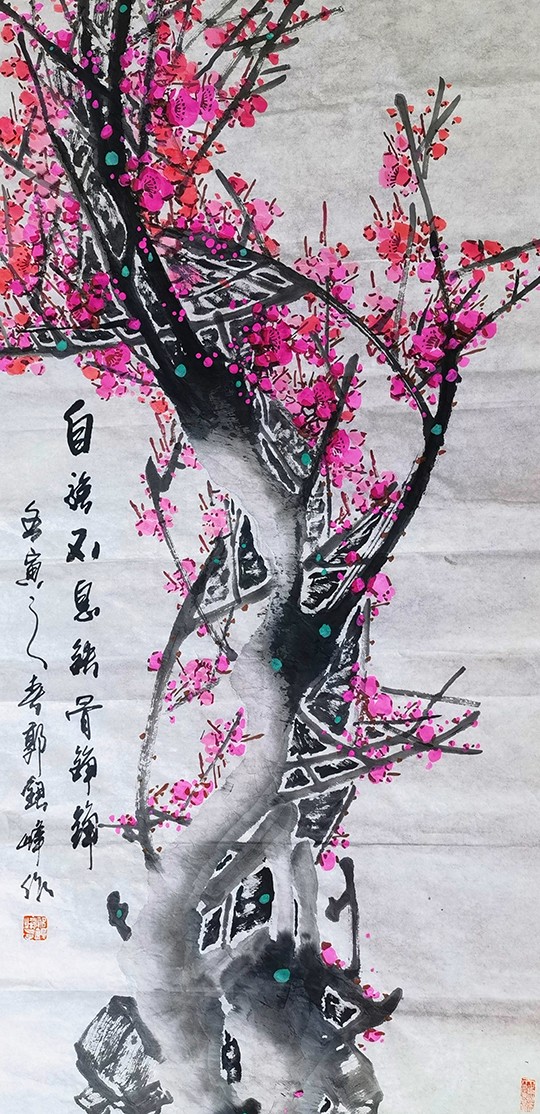 自强不息铁骨铮铮
壬寅之春郭银峰作